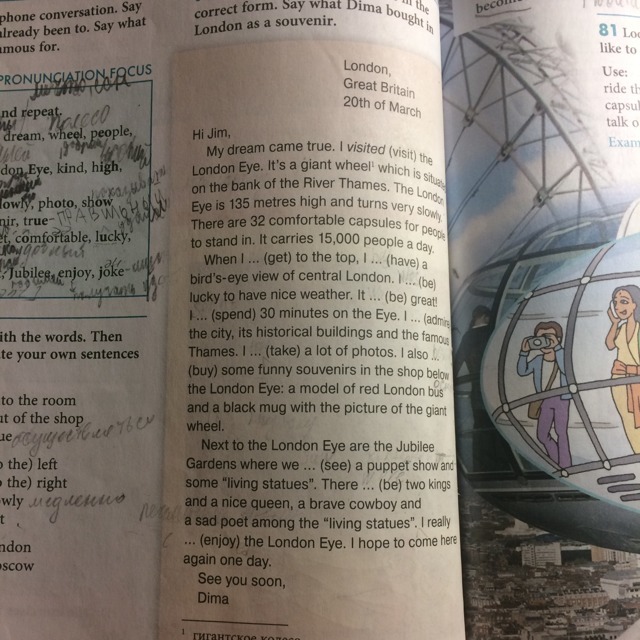 phone conversation. Say
already been to. Say what
amous for.
PRONUNCIATION FOCUS
nd repeat.
dream, wheel, people,
don Eye, kind, high,
lowly, photo, show
nir, true
et, comfortable, lucky,
Jubilee, enjoy, joke
ith the words. Then
te your own sentences
to the room
ut of the shop
ue осуществляться
o the) left
o the) right
owly медленно
t
ndon
oscow
in the
correct form. Say what Dima bought in
London as a souvenir.
London,
Great Britain
20th of March
Hi Jim,
My dream came true. I visited (visit) the
London Eye. It's a giant wheel¹ which is situate
on the bank of the River Thames. The London
Eye is 135 metres high and turns very slowly.
There are 32 comfortable capsules for people
to stand in. It carries 15,000 people a day.
When I ... (get) to the top, I ... (have) a
bird's-eye view of central London. I ... (be)
lucky to have nice weather. It ... (be) great!
I ... (spend) 30 minutes on the Eye. I ... (admire
the city, its historical buildings and the famous
Thames. I ... (take) a lot of photos. I also ...
(buy) some funny souvenirs in the shop below
the London Eye: a model of red London bus
and a black mug with the picture of the giant
wheel.
Next to the London Eye are the Jubilee
Gardens where we ... (see) a puppet show and
some “living statues”. There ... (be) two kings
and a nice queen, a brave cowboy and
a sad poet among the “living statues”. I really
... (enjoy) the London Eye. I hope to come here
again one day.
See you soon,
Dima
¹ гигантское колесо
become
81 Loo
like to
Use:
ride th
capsul
talk o
Exam